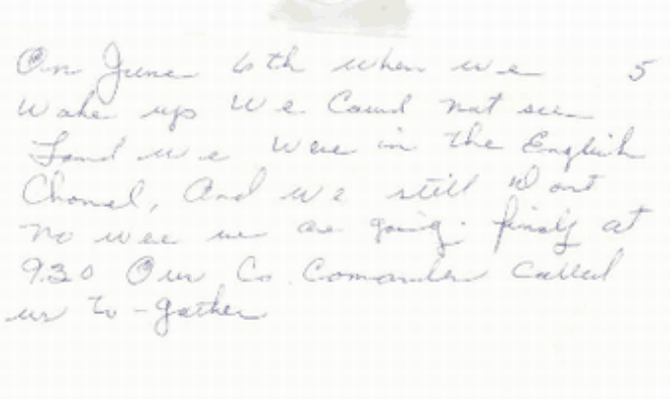 On June 6th when we 5
Wake up We Could not see
Land we were in the English
Chanel, And we still Dont
no wee we are going. finaly at
930 Our Co. Comander Called
us to-gather